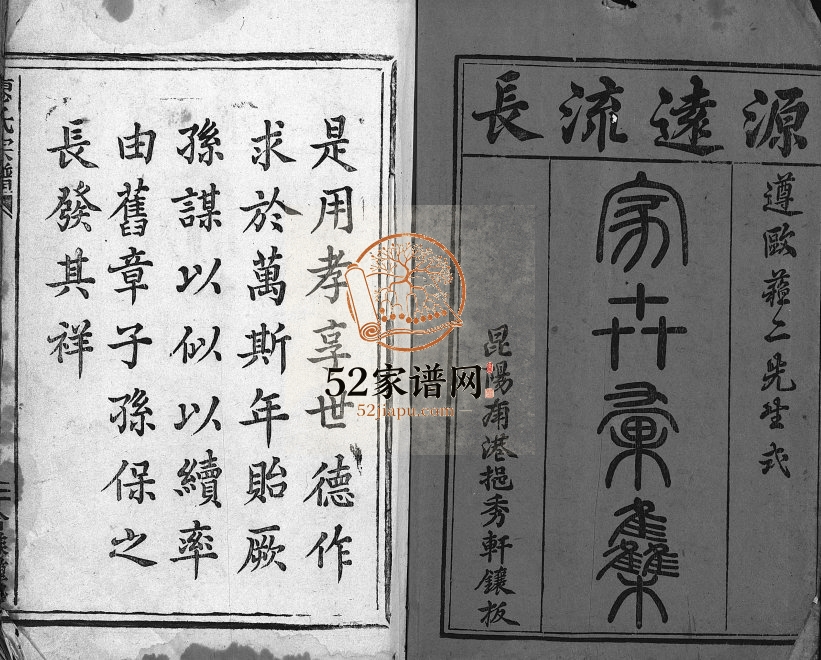 源遠流長
遵歐蘓二先生式
家世彙集
昆陽南港挹秀軒鑲板
是用孝享世德作
求於萬斯年貽厥
孫謀以似以續率
由舊章子孫保之
長發其祥
氏宗譜
52家谱网
52jiapu.com